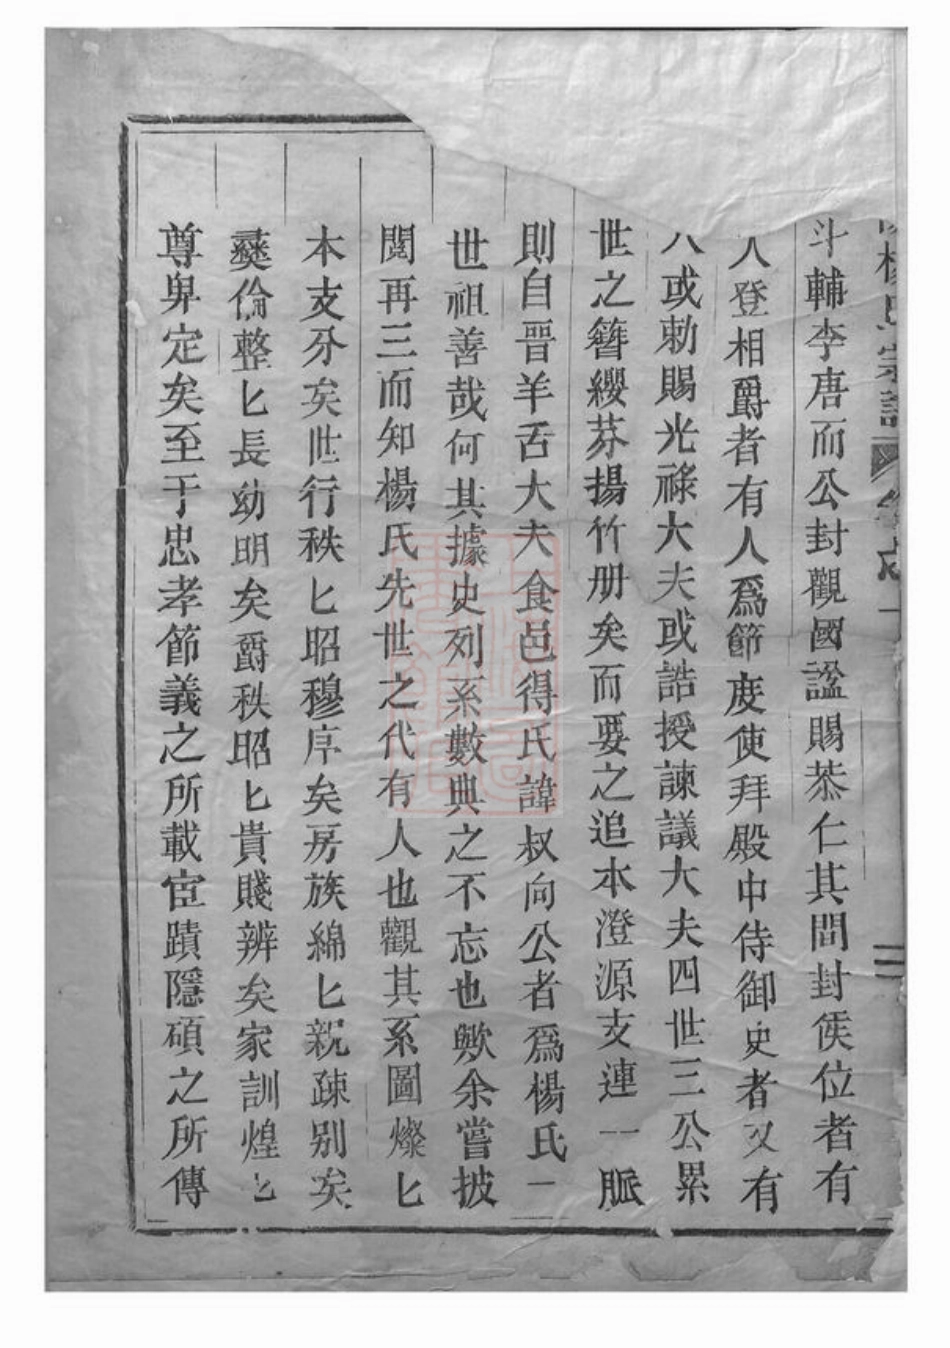 楊氏宗譜
斗輔李唐而公封觀國諡賜恭仁其間封侯位者有
人登相爵者有人爲節度使拜殿中侍御史者又有
八或勅賜光祿大夫或誥授諫議大夫四世三公累
世之簪纓芬揚竹册矣而要之追本澄源支連一脈
則自晋羊舌大夫食邑得氏諱叔向公者爲楊氏一
世祖善哉何其據史列系數典之不忘也歟余嘗披
閱再三而知楊氏先世之代有人也觀其系圖燦匕
本支分矣世行秩匕昭穆序矣房族綿匕親疎别矣
彝倫整匕長幼明矣爵秩昭匕貴賤辨矣家訓煌匕
尊卑定矣至于忠孝節義之所載宦蹟隱碩之所傳